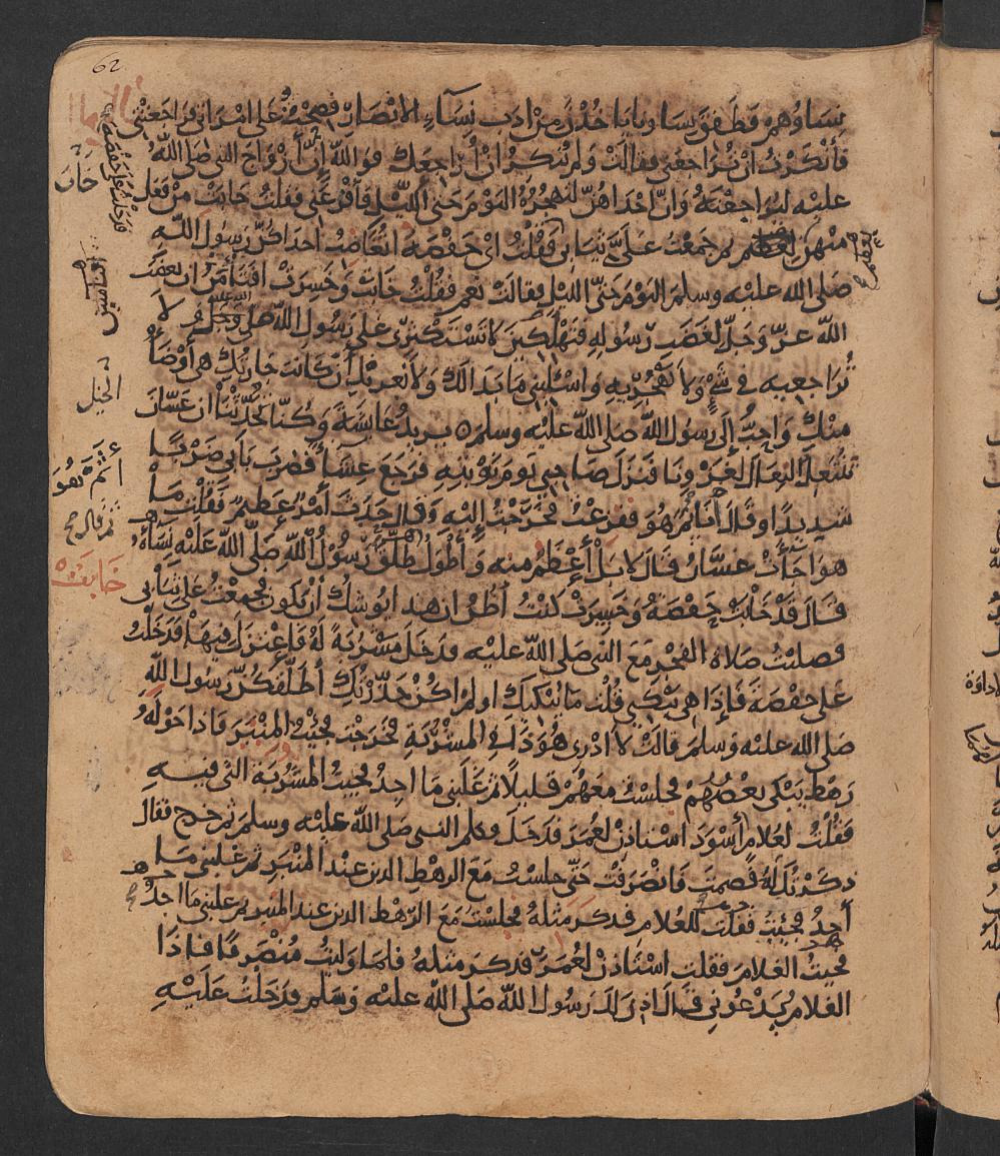 62
نساؤهم فطفق نساونا ياخذن من ادب نسآء الانصار فصحت على امراتي فراجعتني
فأنكرت ان تراجعني فقالت ولم تنكر ان أراجعك فوالله إن أزواج النبي صلى الله
عليه ليراجعنه وان احداهن لتهجره اليوم حتى الليل فأفزعني فقلت خابت من فعل
منهن بعظيم ثم جمعت علي ثيابي فقلت اي حفصة اتغاضب احداكن رسول الله
صلى الله عليه وسلم اليوم حتى الليل فقالت نعم فقلت خابت وخسرت افتأمن ان يغضب
الله عز وجل لغضب رسوله فتهلكين لا تستكثري على رسول الله صلى الله عليه وسلم ولا
تراجعيه في شيء ولا تهجريه واسئليني ما بدا لك ولا يغرنك أن كانت جارتك هي أوضأ
منك واحب إلى رسول الله صلى الله عليه وسلم يريد عائشة وكنا تحدثنا ان غسان
تنعل النعال لغزونا فنزل صاحبي يوم نوبته فرجع عشاء فضرب بابي ضربا
شديدا وقال أنائم هو ففزعت فخرجت إليه وقال حدث أمر عظيم فقلت ما
هو اجآءت غسان قال لا بل أعظم منه وأطول طلق رسول الله صلى الله عليه نسآءه
قال قد خابت حفصة وخسرت كنت أظن ان هذا يوشك أن يكون فجمعت علي ثيابي
فصليت صلاة الفجر مع النبي صلى الله عليه فدخل مشربة له فاعتزل فيها فدخلت
على حفصة فإذا هي تبكي قلت ما يبكيك اولم اكن حذرتك أطلقكن رسول الله
صلى الله عليه وسلم قالت لا ادري هو ذا في المشربة فخرجت فجئت المنبر فاذا حوله
رهط يبكي بعضهم فجلست معهم قليلا ثم غلبني ما اجد فجيت المشربة التي فيه
فقلت لغلام أسود استاذن لعمر فدخل فكلم النبي صلى الله عليه وسلم ثم خرج فقال
ذكرتك له فصمت فانصرفت حتى جلست مع الرهط الذين عند المنبر ثم غلبني ما
أجد فجيت فقلت للغلام فذكر مثله فجلست مع الرهط الذين عند المنبر ثم غلبني ما اجد
فجيت الغلام فقلت استاذن لعمر فذكر مثله فلما وليت منصرفا فاذا
الغلام يدعوني قال اذن لك رسول الله صلى الله عليه وسلم فدخلت عليه
فدخلت على حفصة
خاب
بعظيم
افتامنين
الخيل
أثم هو
ثم قال
خابت